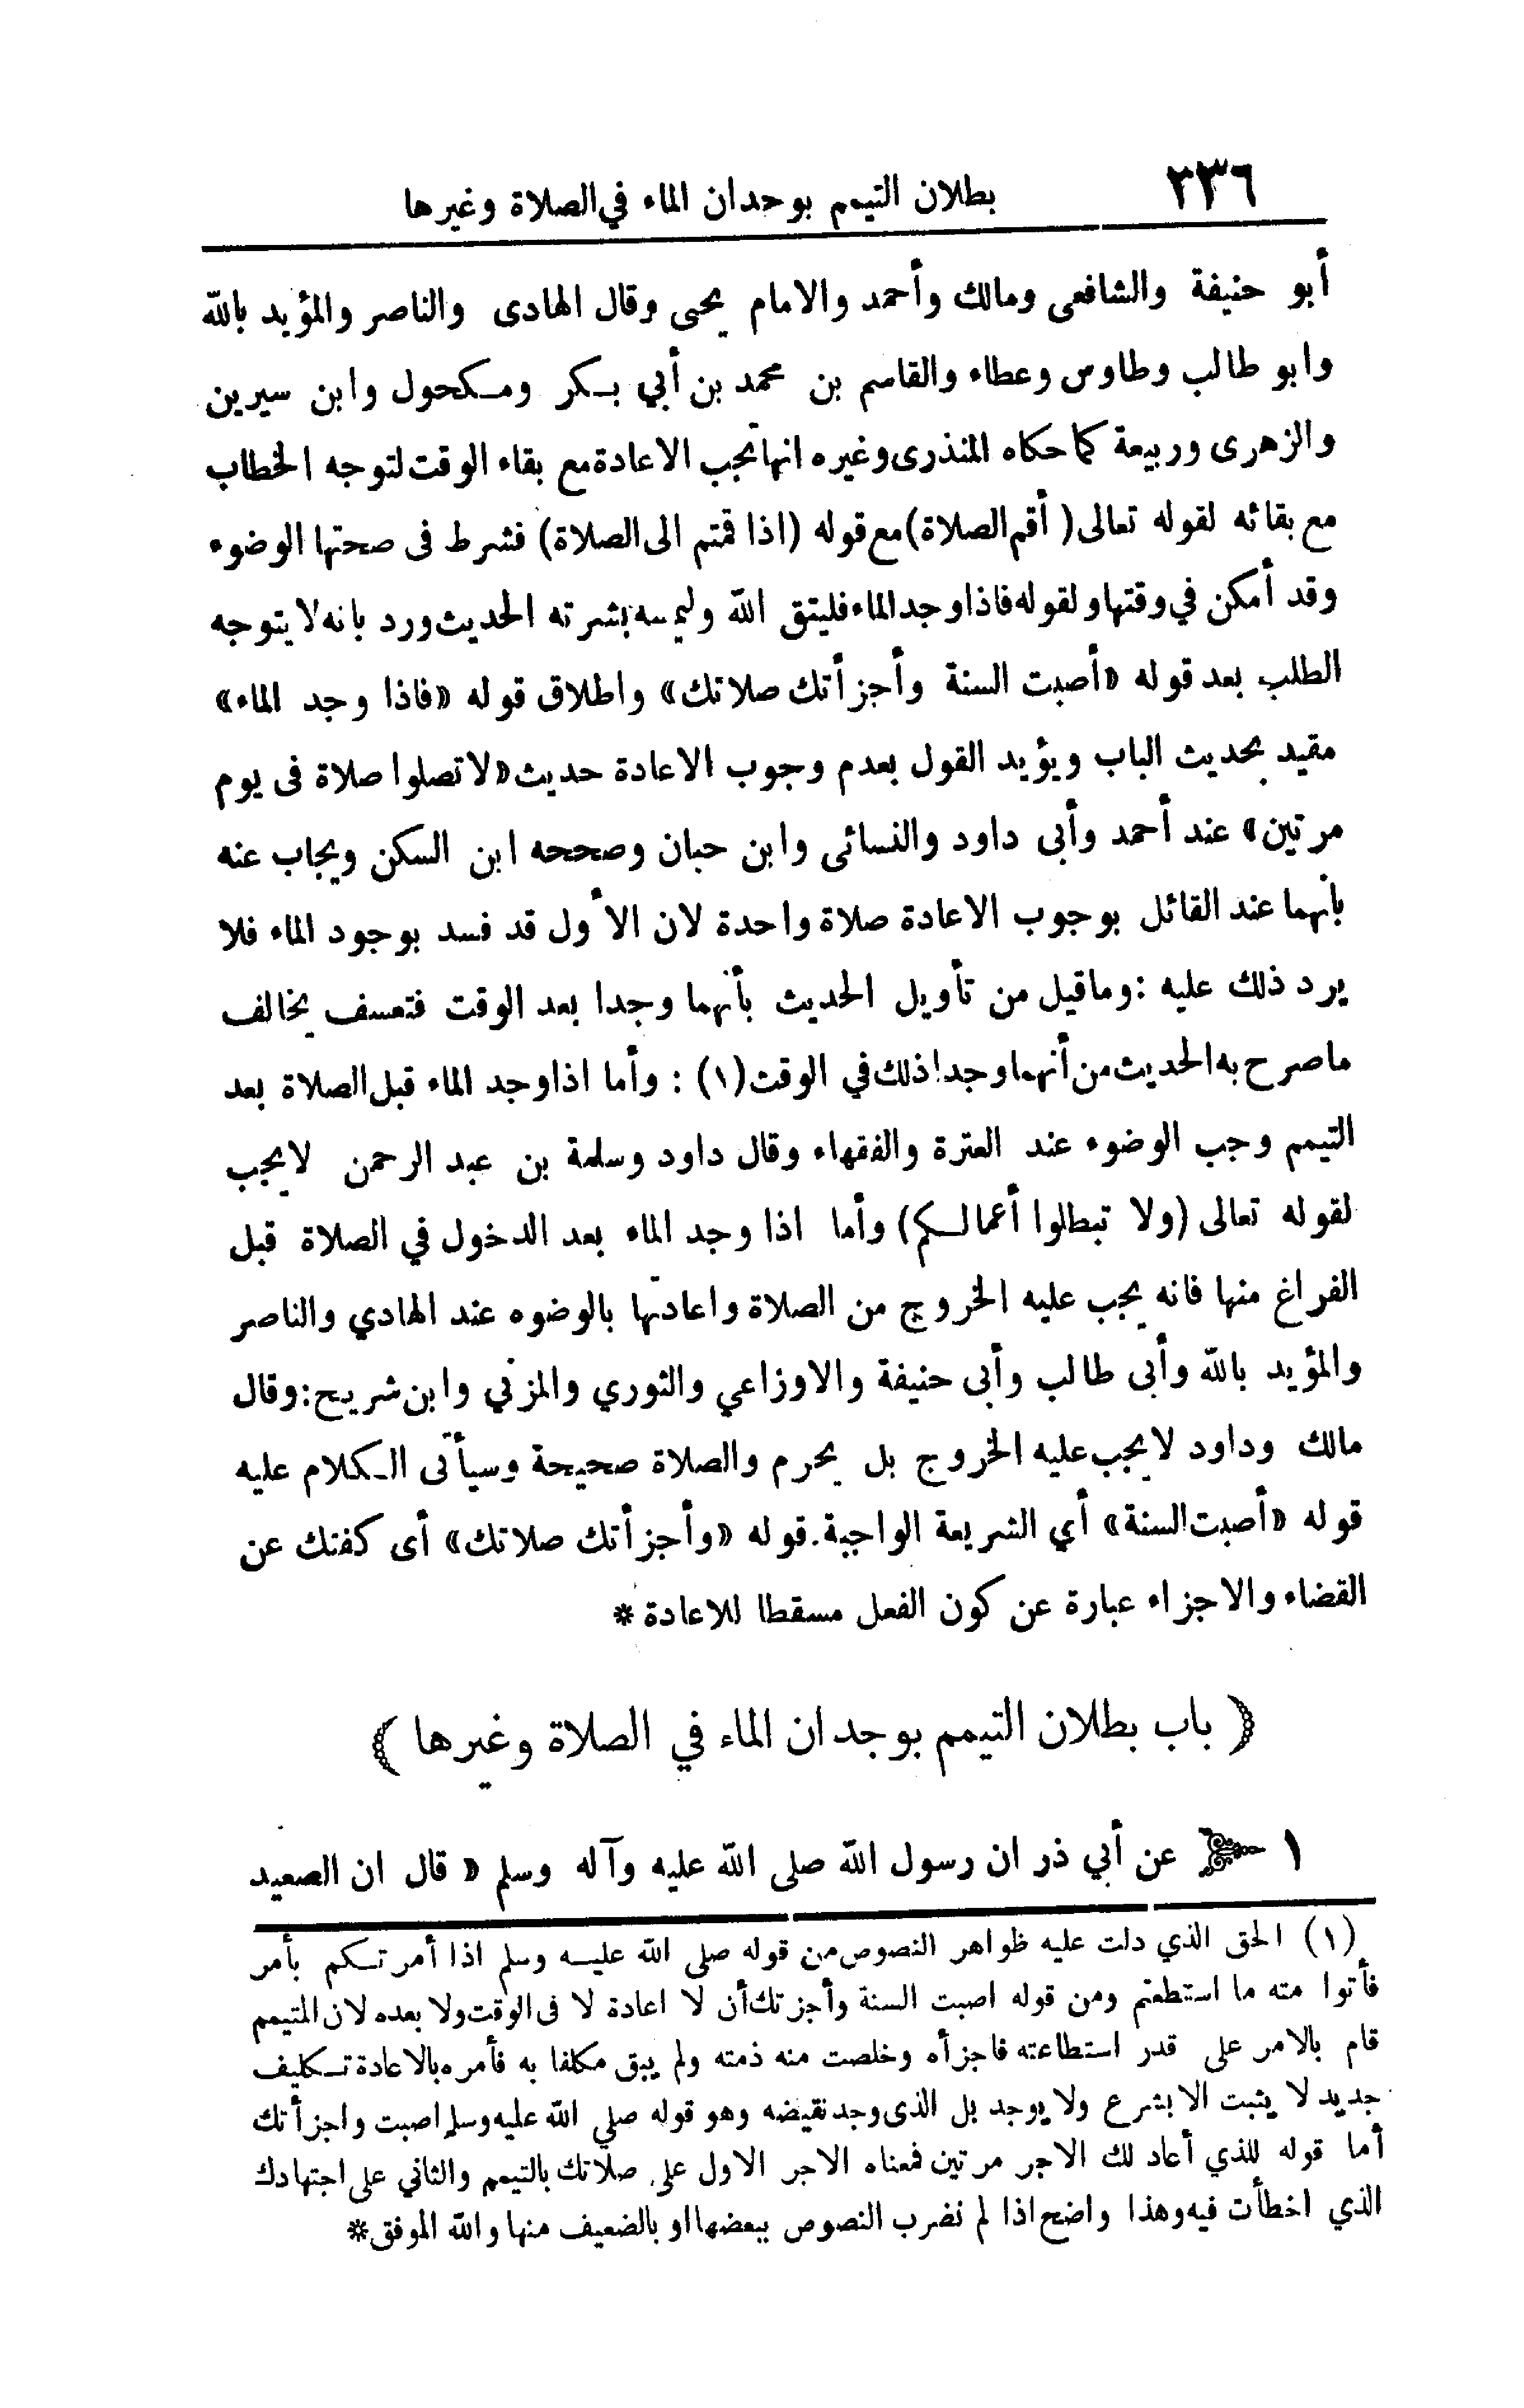 ٢٣٦ بطلان التيمم بوحدان الماء في الصلاة وغيرها
أبو حنيفة والشافعى ومالك وأحمد والامام يحيى وقال الهادى والناصر والمؤيد بالله
وابو طالب وطاوس وعطاء والقاسم بن محمد بن أبي بكر ومكحول وابن سيرين
والزهرى وربيعة كما حكاه المنذرى وغيره انها تجب الاعادة مع بقاء الوقت لتوجه الخطاب
مع بقائه لقوله تعالى (أقم الصلاة) مع قوله (اذا قمتم الى الصلاة) فشرط فى صحتها الوضوء
وقد أمكن في وقتها ولقوله فاذا وجد الماء فليتق الله وليمسه بشرته الحديث ورد بانه لا يتوجه
الطلب بعد قوله «أصبت السنة وأجزأتك صلاتك» واطلاق قوله «فاذا وجد الماء»
مقيد بحديث الباب ويؤيد القول بعدم وجوب الاعادة حديث «لا تصلوا صلاة فى يوم
مرتين» عند أحمد وأبى داود والنسائى وابن حبان وصححه ابن السكن ويجاب عنه
بأنهما عند القائل بوجوب الاعادة صلاة واحدة لان الأول قد فسد بوجود الماء فلا
يرد ذلك عليه : وما قيل من تأويل الحديث بأنهما وجدا بعد الوقت فتعسف يخالف
ما صرح به الحديث من أنهما وجدا ذلك في الوقت (١) : وأما اذا وجد الماء قبل الصلاة بعد
التيمم وجب الوضوء عند العترة والفقهاء وقال داود وسلمة بن عبد الرحمن لا يجب
لقوله تعالى (ولا تبطلوا أعمالكم) وأما اذا وجد الماء بعد الدخول في الصلاة قبل
الفراغ منها فانه يجب عليه الخروج من الصلاة واعادتها بالوضوء عند الهادي والناصر
والمؤيد بالله وأبى طالب وأبى حنيفة والاوزاعي والثوري والمزني وابن شريح : وقال
مالك وداود لا يجب عليه الخروج بل يحرم والصلاة صحيحة وسيأتى الكلام عليه
قوله «أصبت السنة» أي الشريعة الواجبة. قوله «وأجزأتك صلاتك» أى كفتك عن
القضاء والاجزاء عبارة عن كون الفعل مسقطا للاعادة *
﴿ باب بطلان التيمم بوجدان الماء في الصلاة وغيرها ﴾
١ عن أبي ذر ان رسول الله صلى الله عليه وآله وسلم « قال ان الصعيد
(١) الحق الذي دلت عليه ظواهر النصوص من قوله صلى الله عليه وسلم اذا أمرتكم بأمر
فأتوا مته ما استطعتم ومن قوله اصبت السنة وأجزتك أن لا اعادة لا فى الوقت ولا بعده لان المتيمم
قام بالامر على قدر استطاعته فاجزأه وخلصت منه ذمته ولم يبق مكلفا به فأمره بالاعادة تكليف
جديد لا يثبت الا بشرع ولا يوجد بل الذى وجد نقيضه وهو قوله صلي الله عليه وسلم اصبت واجزأتك
أما قوله للذي أعاد لك الاجر مرتين فمعناه الاجر الاول على صلاتك بالتيمم والثاني على اجتهادك
الذي اخطأت فيه وهذا واضح اذا لم نضرب النصوص ببعضها او بالضعيف منها والله الموفق *